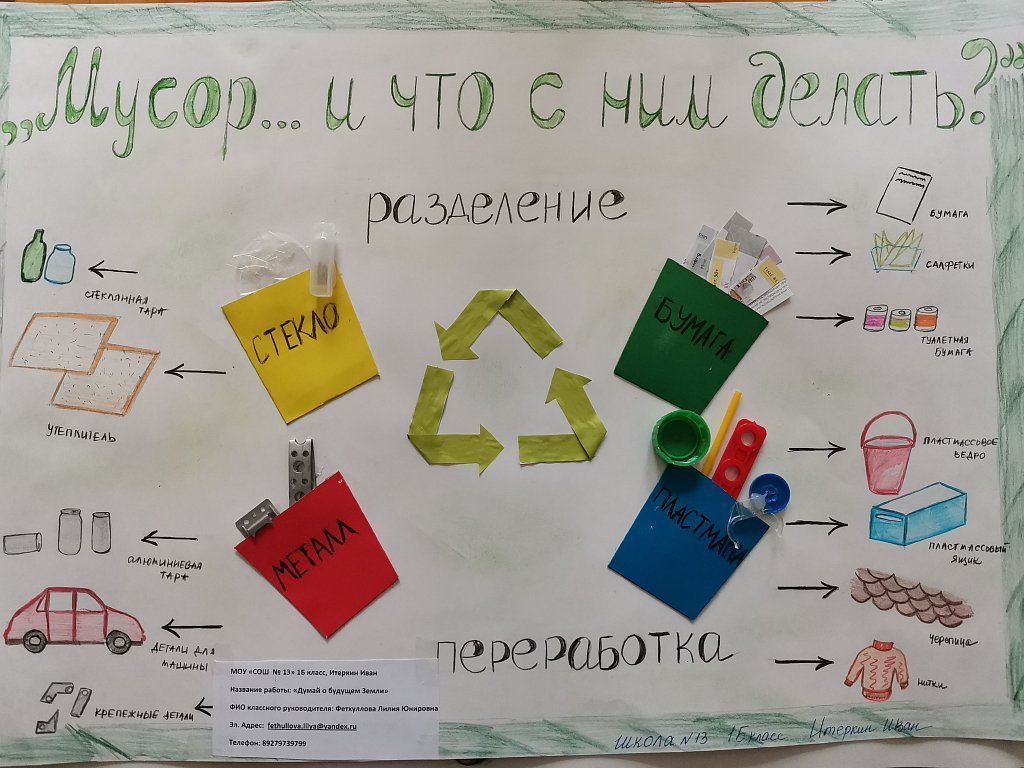 „Мусор... и что с ним делать?“
разделение
БУМАГА
САЛФЕТКИ
ТУАЛЕТНАЯ
БУМАГА
СТЕКЛЯННАЯ
ТАРА
УТЕПЛИТЕЛЬ
СТЕКЛО
БУМАГА
ПЛАСТМАССОВОЕ
ВЕДРО
ПЛАСТМАССОВЫЙ
ЯЩИК
ЧЕРЕПИЦА
НИТКИ
МЕТАЛЛ
АЛЮМИНИЕВАЯ
ТАРА
ДЕТАЛИ ДЛЯ
МАШИНЫ
КРЕПЕЖНЫЕ ДЕТАЛИ
переработка
МОУ «СОШ № 13» 1Б класс, Итеркин Иван
Название работы: «Думай о будущем Земли»
ФИО классного руководителя: Феткуллова Лилия Юнировна
Эл. Адрес: fethullova.lilya@yandex.ru
Телефон: 89279739799
Школа №13 1Б класс Итеркин Иван